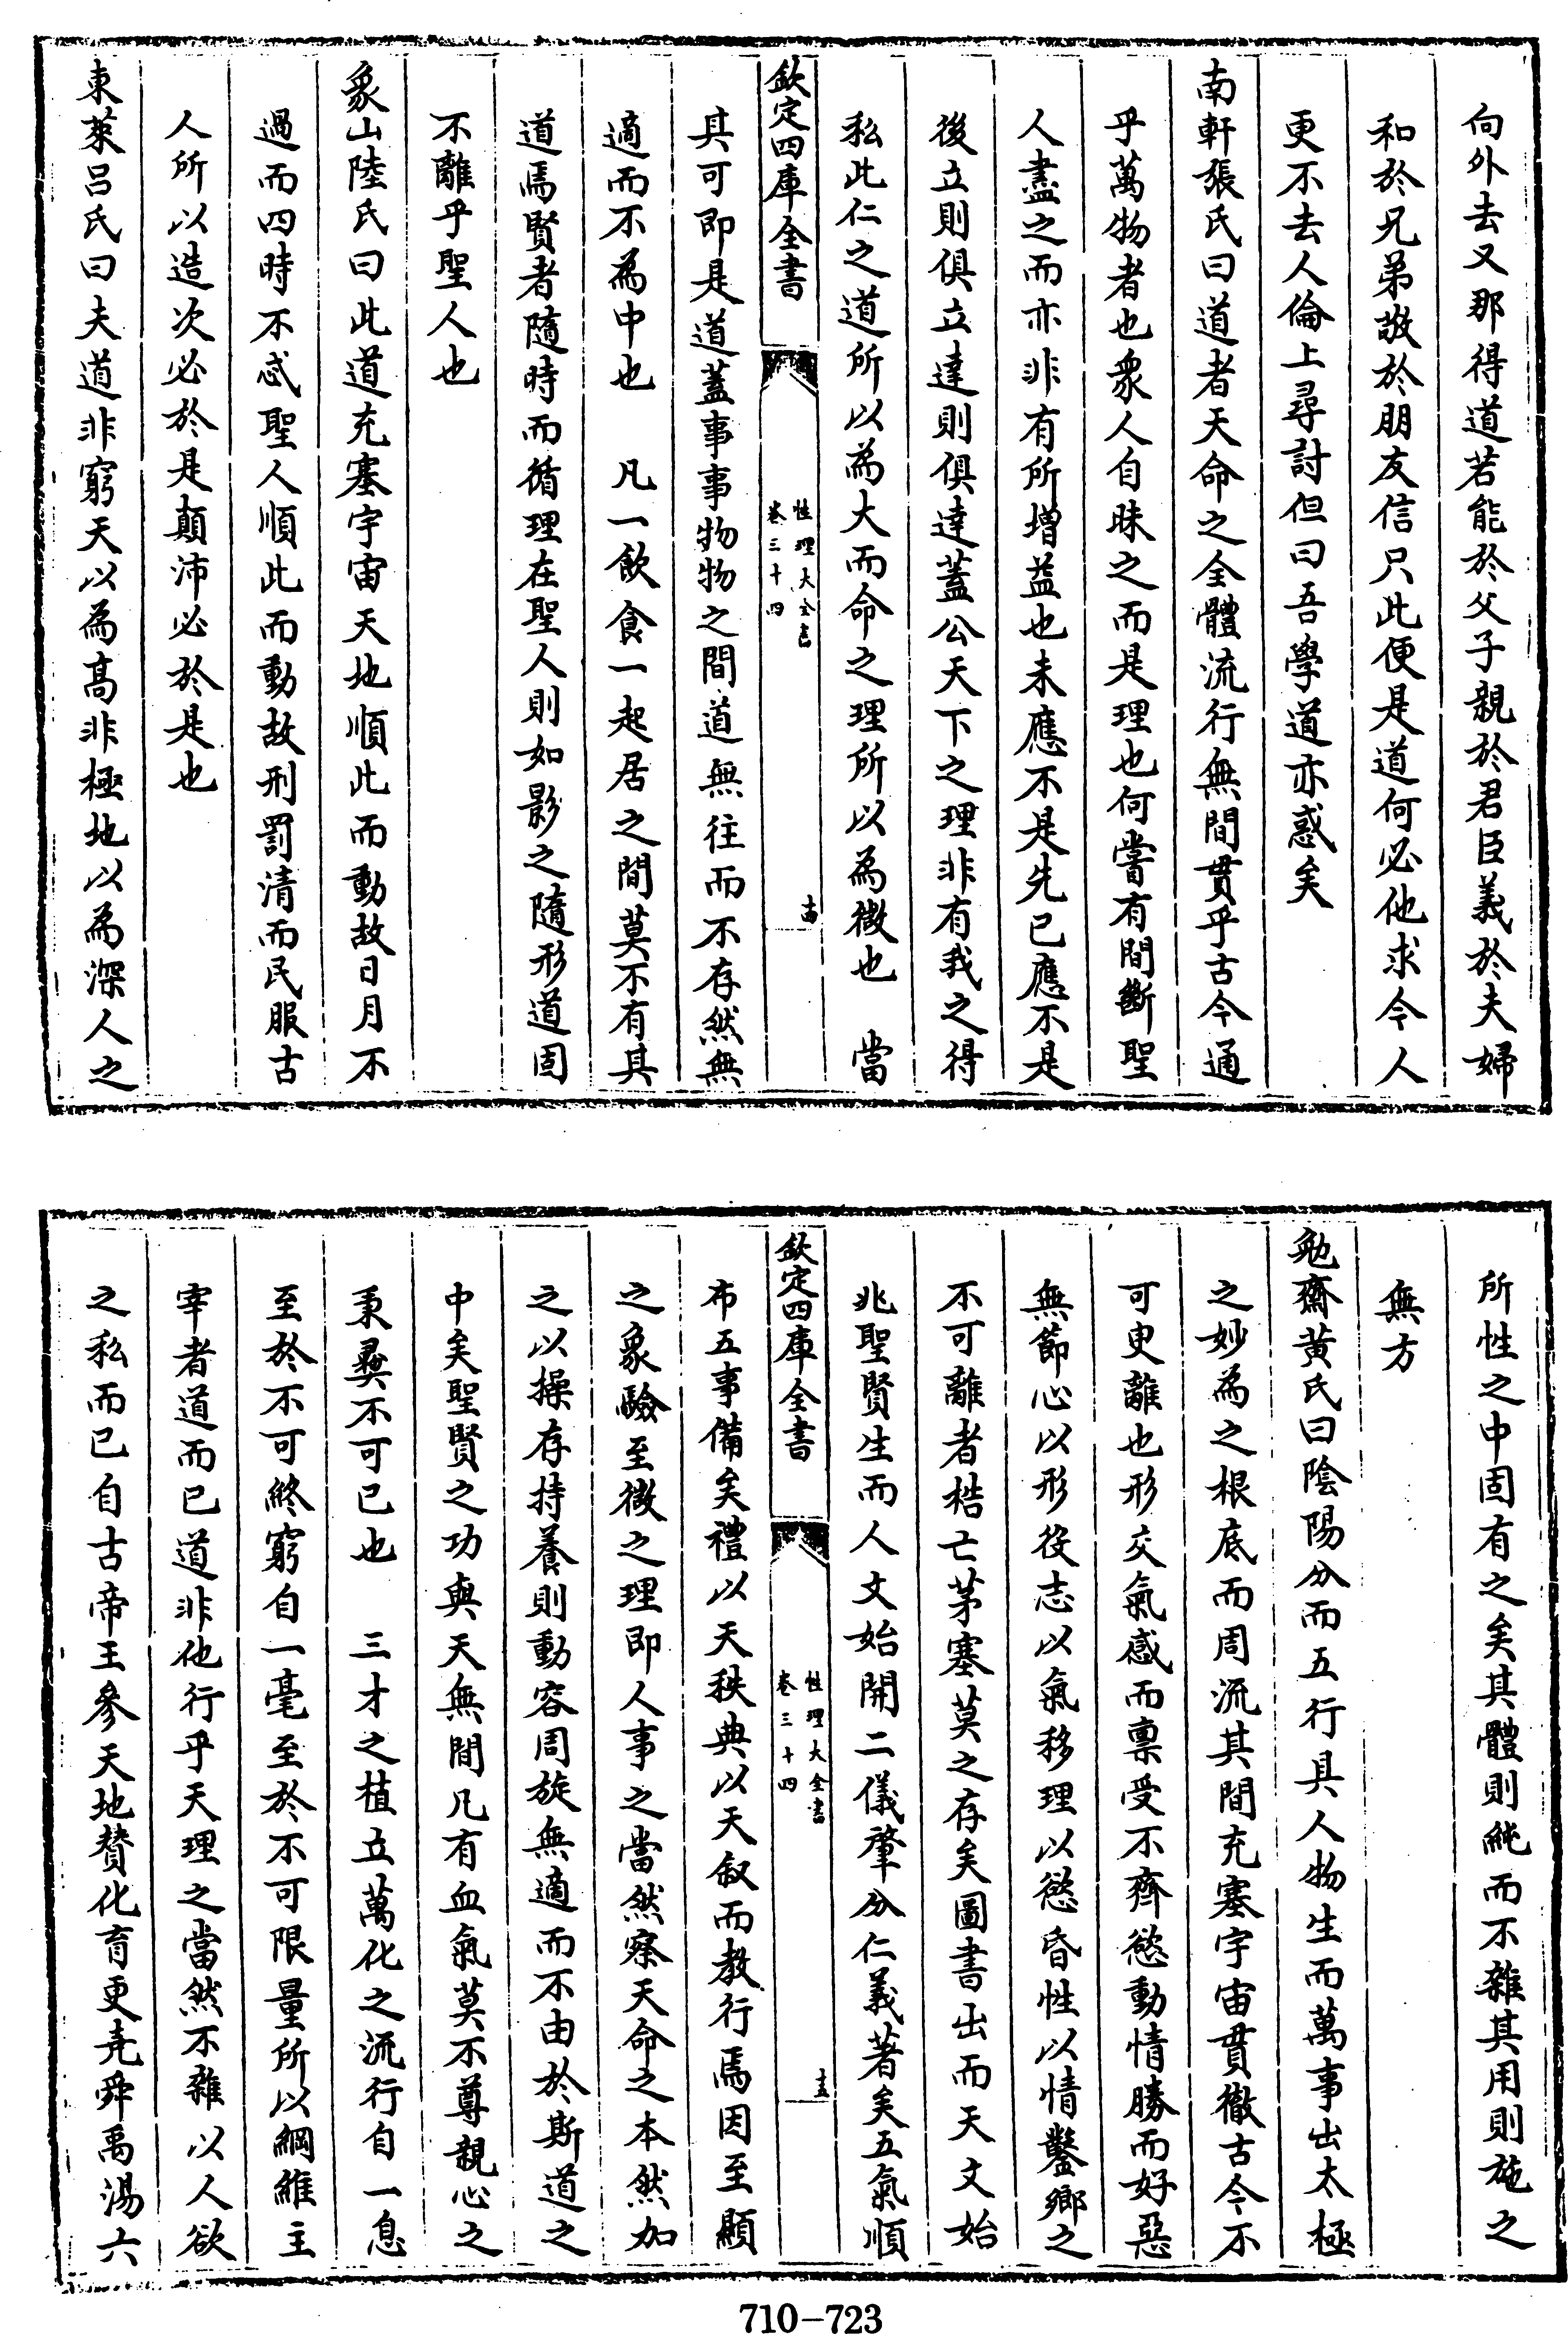 向外去又那得道若能於父子親於君臣義於夫婦
和於兄弟敬於朋友信只此便是道何必他求今人
更不去人倫上尋討但曰吾學道亦惑矣
南軒張氏曰道者天命之全體流行無間貫乎古今通
乎萬物者也衆人自昧之而是理也何嘗有間斷聖
人盡之而亦非有所增益也未應不是先已應不是
後立則俱立達則俱達蓋公天下之理非有我之得
私此仁之道所以為大而命之理所以為微也　當
欽定四庫全書
性理大全書
卷三十四
十四
其可即是道蓋事事物物之間道無往而不存然無
適而不為中也　凡一飲食一起居之間莫不有其
道焉賢者隨時而循理在聖人則如影之隨形道固
不離乎聖人也
象山陸氏曰此道充塞宇宙天地順此而動故日月不
過而四時不忒聖人順此而動故刑罰清而民服古
人所以造次必於是顛沛必於是也
東萊呂氏曰夫道非窮天以為高非極地以為深人之
所性之中固有之矣其體則純而不雜其用則施之
無方
勉齋黃氏曰陰陽分而五行具人物生而萬事出太極
之妙為之根底而周流其間充塞宇宙貫徹古今不
可臾離也形交氣感而稟受不齊慾動情勝而好惡
無節心以形役志以氣移理以慾昏性以情鑿鄉之
不可離者梏亡茅塞莫之存矣圖書出而天文始
兆聖賢生而人文始開二儀肇分仁義著矣五氣順
欽定四庫全書
性理大全書
卷三十四
十五
布五事備矣禮以天秩典以天叙而教行焉因至顯
之象驗至微之理即人事之當然察天命之本然加
之以操存持養則動容周旋無適而不由於斯道之
中矣聖賢之功與天無間凡有血氣莫不尊親心之
秉彝不可已也　三才之植立萬化之流行自一息
至於不可終窮自一毫至於不可限量所以綱維主
宰者道而已道非他行乎天理之當然不雜以人欲
之私而已自古帝王參天地贊化育更堯舜禹湯六
710-723